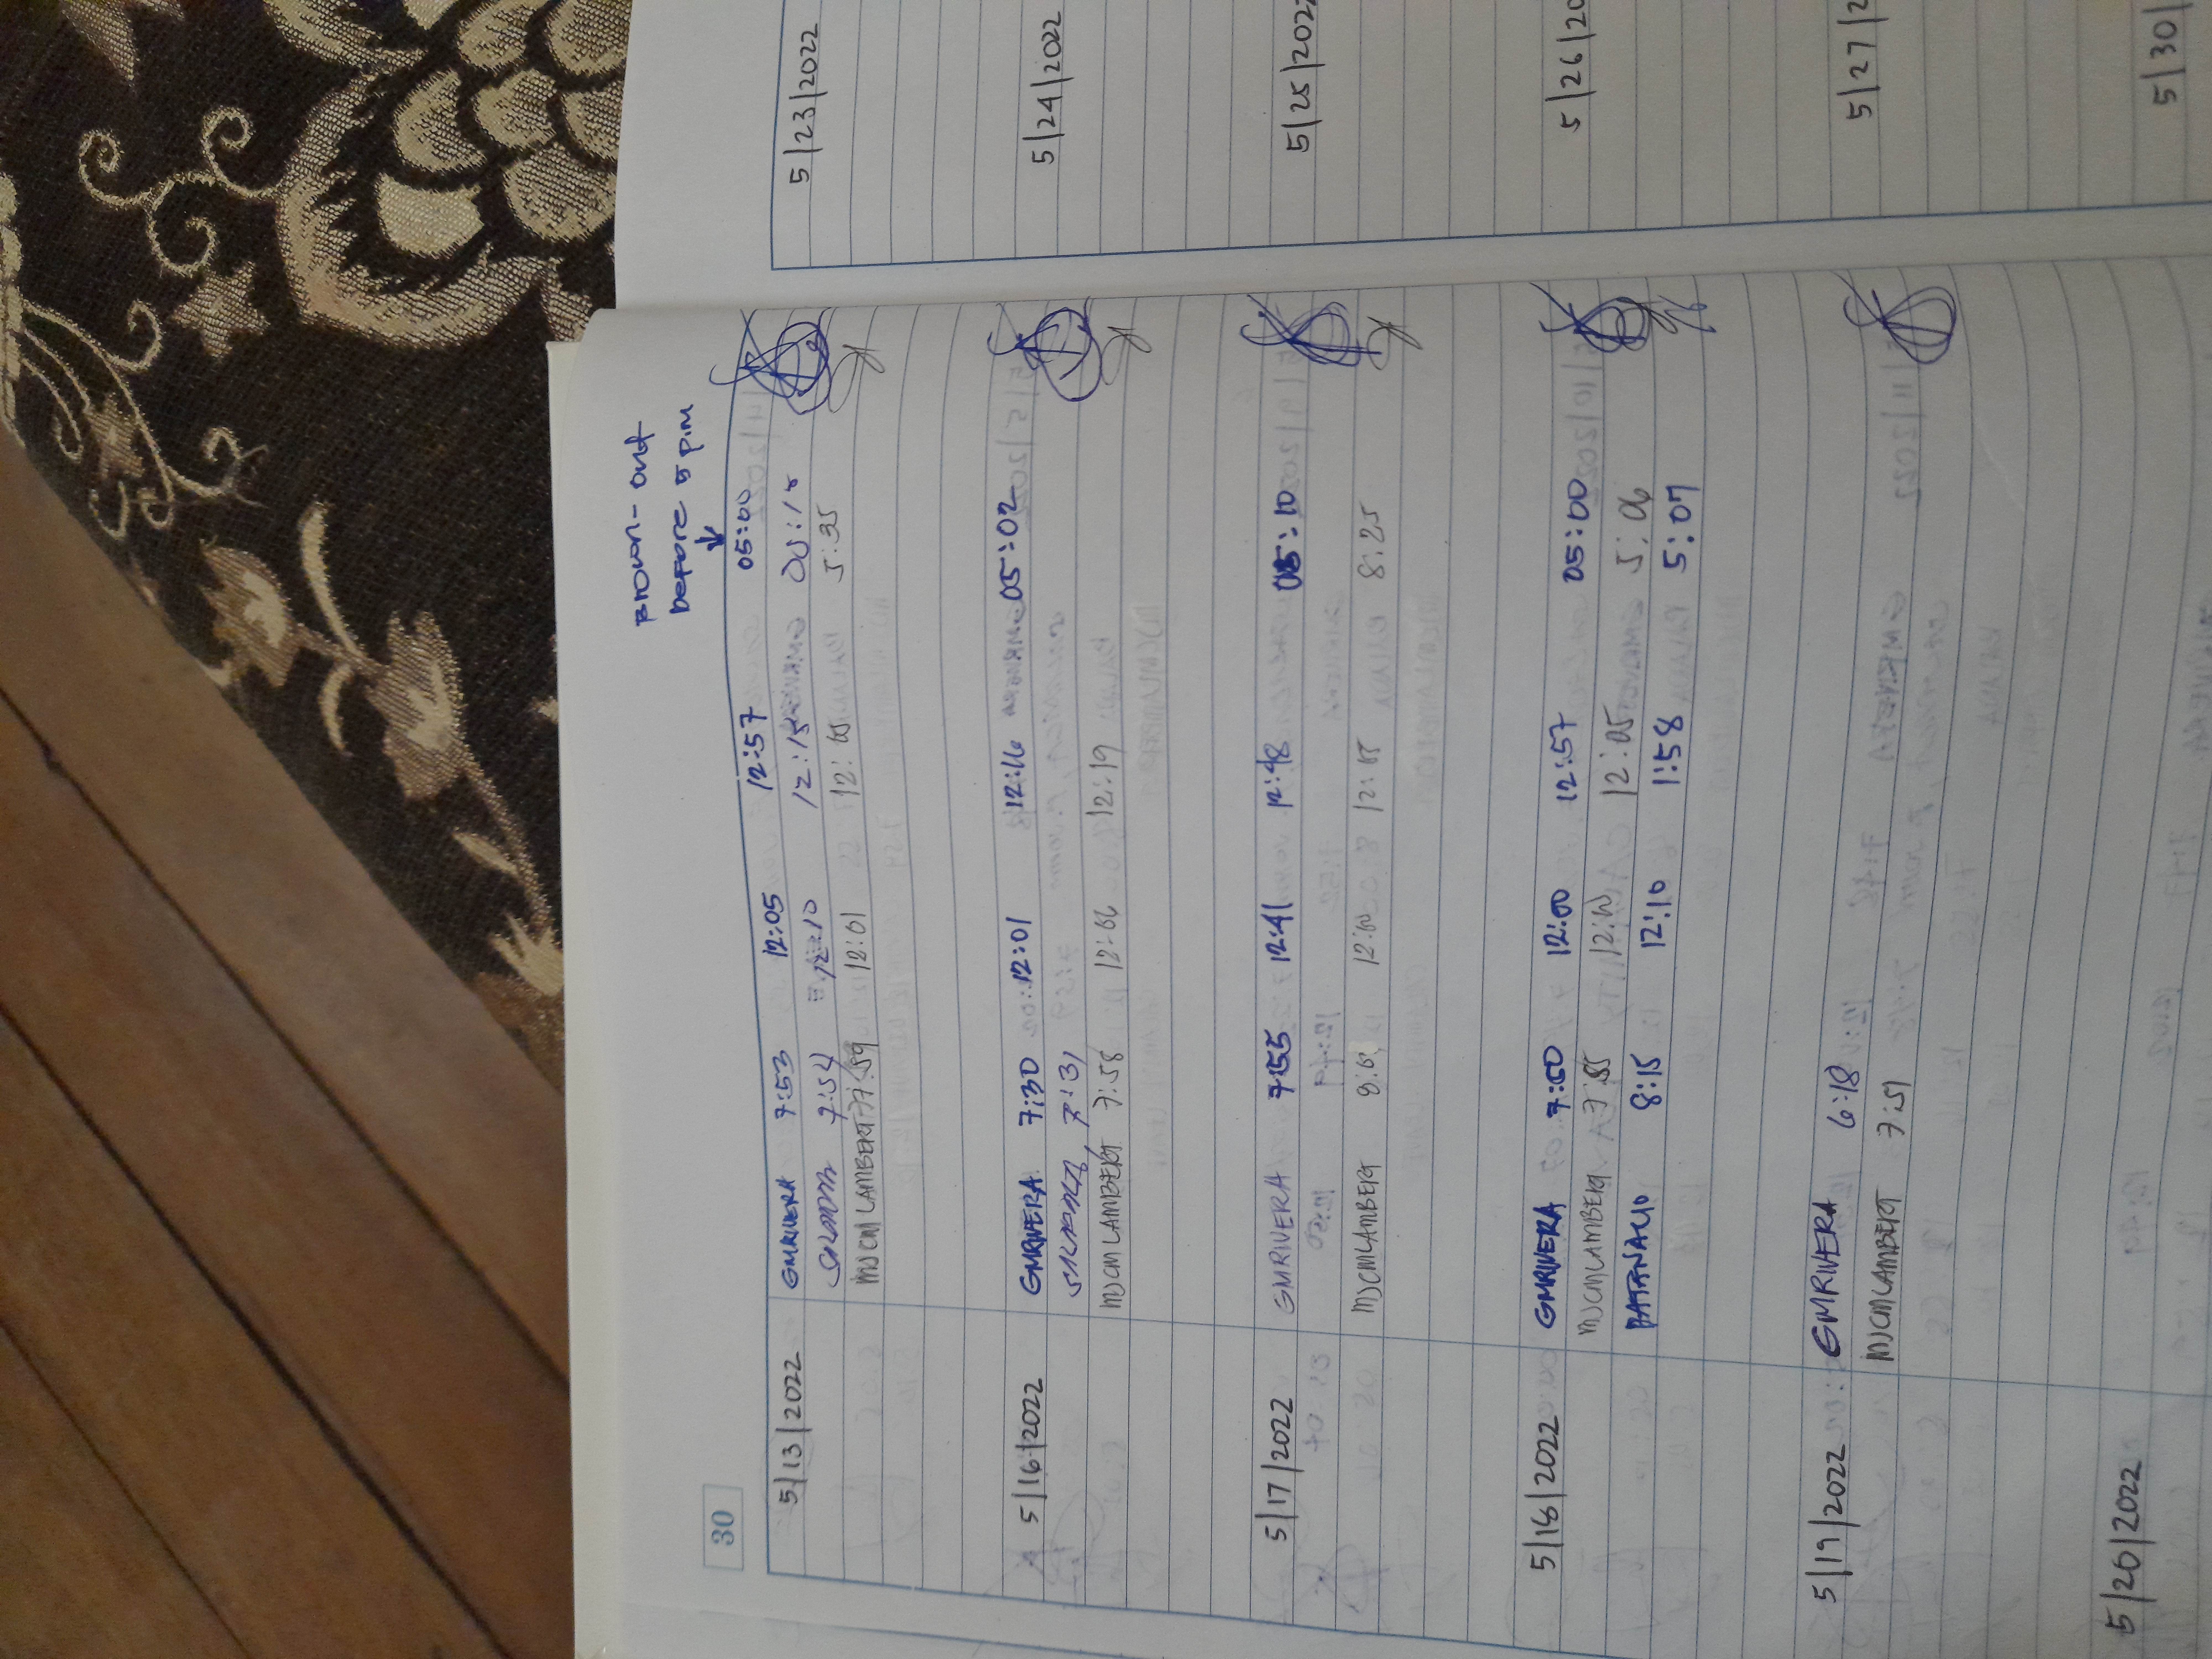 Brown-out
before 5 pm
30
5/13/2022 GMRIVERA 7:53 12:05 12:57 05:00
7:54 12:10 12:15
MJCMLAMBERT 7:59 12:01 12:05 5:35
5/16/2022 GMRIVERA 7:30 12:01 12:16 05:02
7:31
MJCMLAMBERT 7:58 12:06 12:19
5/17/2022 GMRIVERA 7:55 12:41 12:48 05:10
MJCMLAMBERT 12:00 12:05 8:25
5/18/2022 GMRIVERA 7:50 12:00 12:57 05:00
MJCMLAMBERT 7:55 12:00 12:05 5:06
PATANAO 8:15 12:10 1:58 5:07
5/19/2022 GMRIVERA 6:18
MJCMLAMBERT 7:51
5/20/2022
5/23/2022
5/24/2022
5/25/2022
5/26/20
5/27/2
5/30/